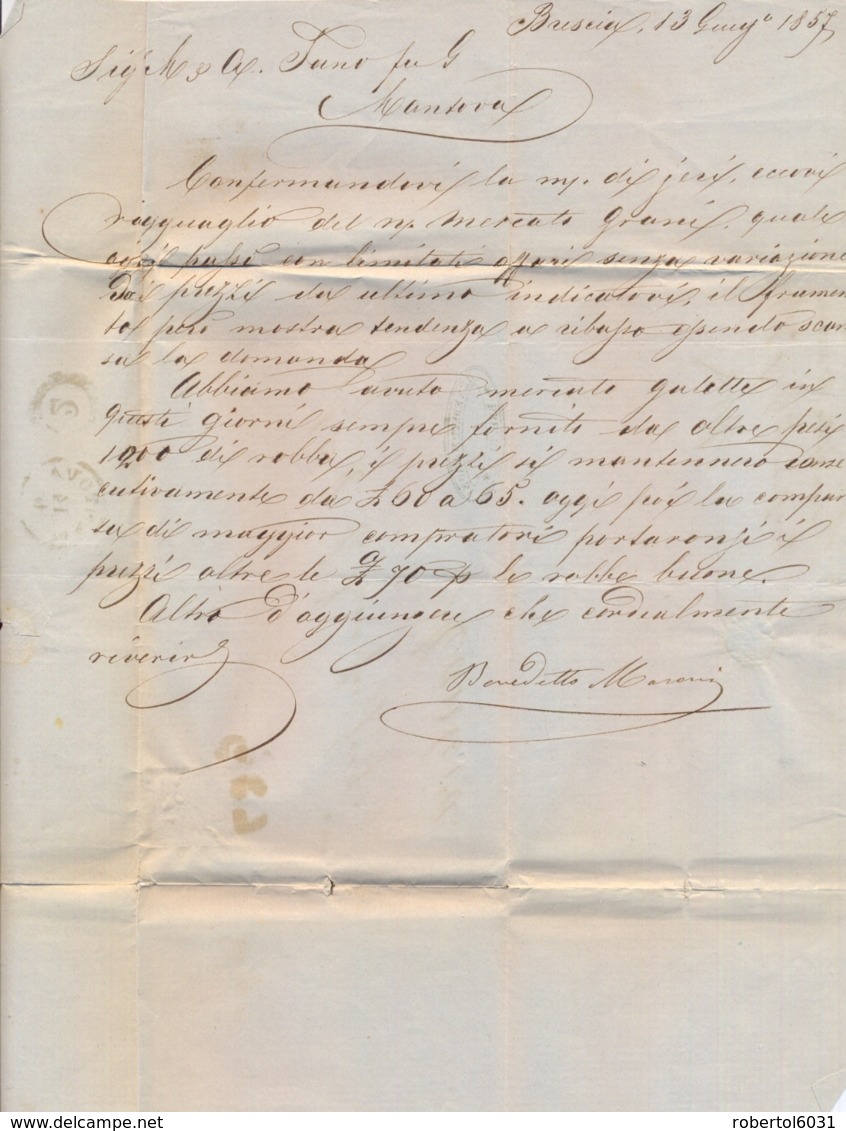 Brescia, 13 Giug.º 1857
Sig. M & A. Fano fu G
Mantova
Confermandovi la m/. di jeri, eccovi
ragguaglio del n/. mercato Grani, quale
oggi passò con limitati affari senza variazione
dai prezzi da ultimo indicatovi, il frumen
to però mostra tendenza a ribasso essendo scar
sa la domanda
Abbiamo avuto mercato galette in
questi giorni sempre fornito da oltre pesi
di robba, i prezzi si mantennero conse
cutivamente da £ 60 a 65. oggi poi la compar
sa di maggior compratori portaronzi i
prezzi oltre le £ 70 p le robbe buone.
Altro d'aggiungere che cordialmente
riverir
Benedetto
delcampe.net
robertol6031